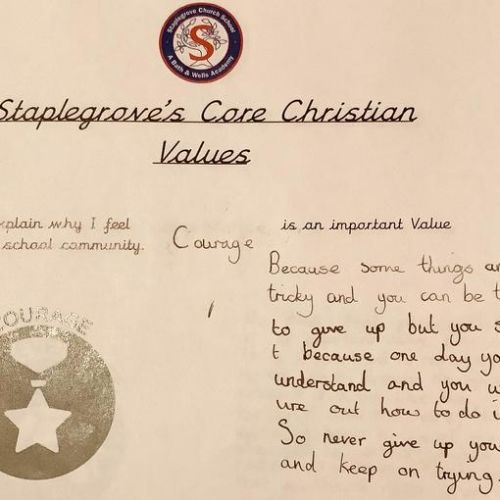 Staplegrove Church School
S
A Bath & Wells Academy
Staplegrove's Core Christian
Values
explain why I feel
Courage
is an important Value
school community.
Because some things
tricky and you can be
to give up but you
because one day
understand and you
out how to do
So never give up
and keep on trying
COURAGE